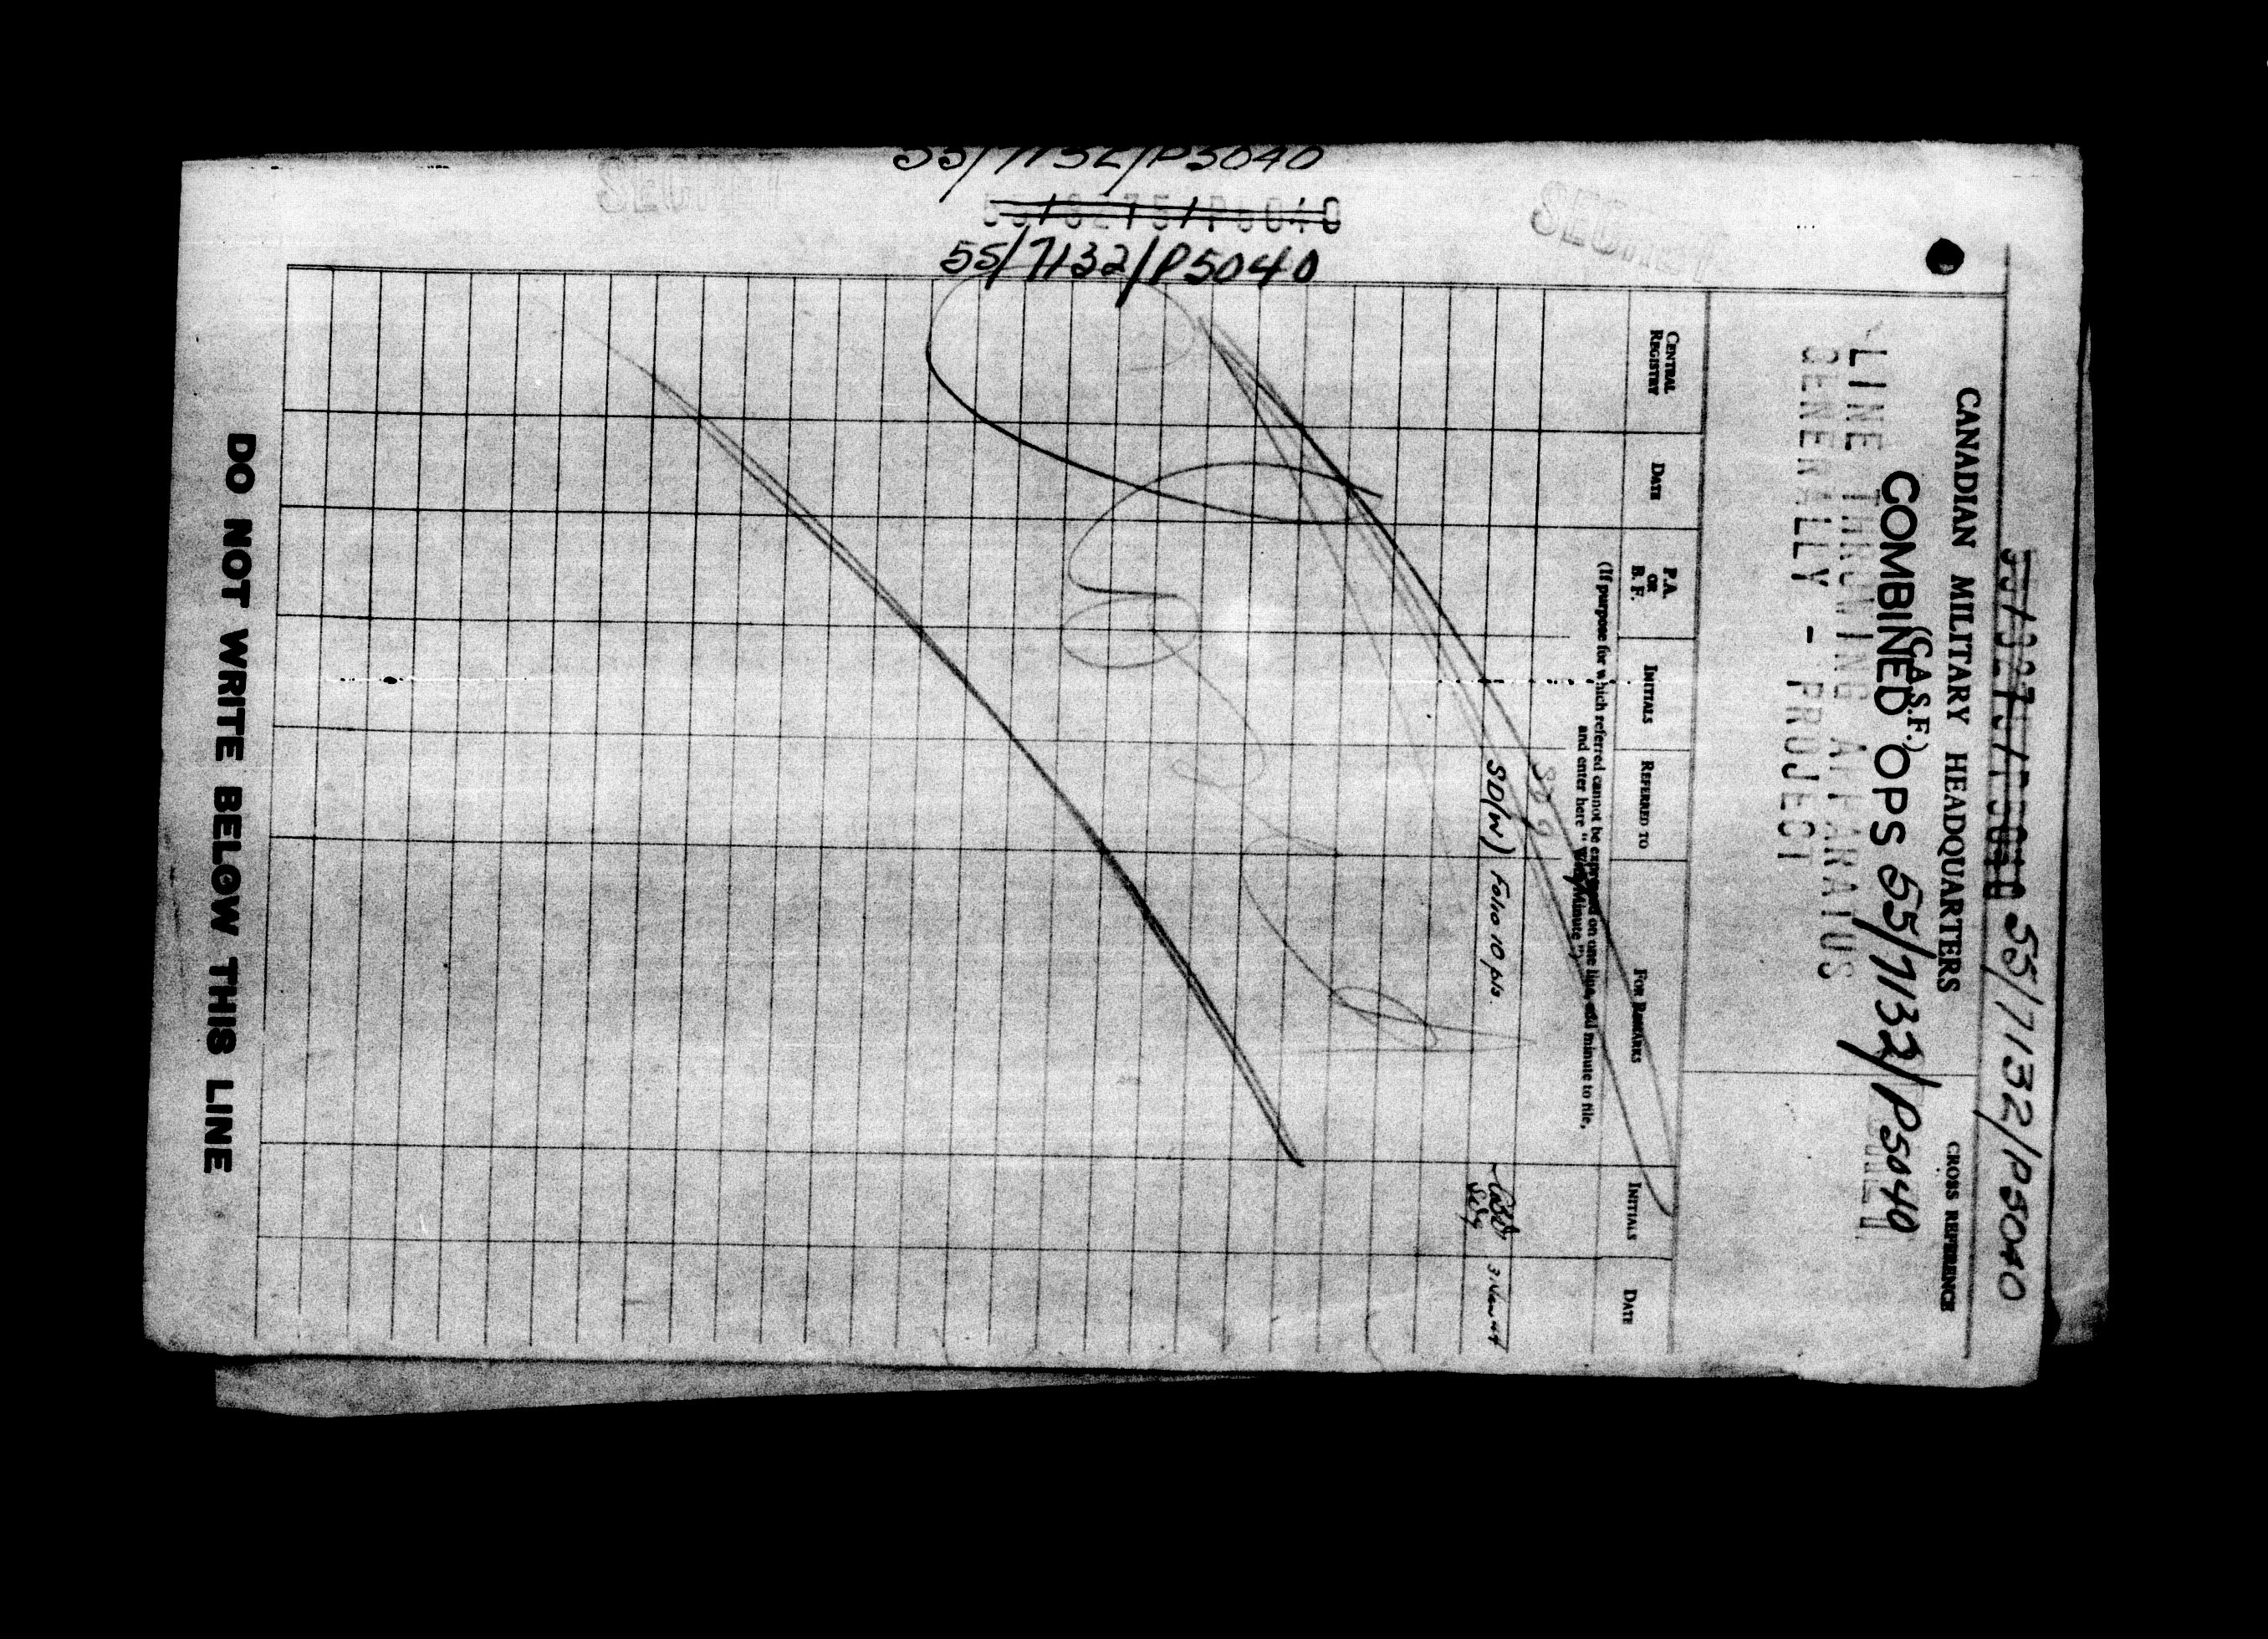 55/7132/P5040
55/3275/P5040
55/7132/P5040
SECRET
SECRET
55/3275/P5040 55/7132/P5040
CANADIAN MILITARY HEADQUARTERS
CROSS REFERENCE
(C.A.S.F.)
COMBINED OPS 55/7132/P5040
LINE THROWING APPARATUS
GENERALLY - PROJECT
CENTRAL REGISTRY
DATE
P.A. OR B.F.
INITIALS
REFERRED TO
FOR REMARKS
INITIALS
DATE
(If purpose for which referred cannot be expressed on one line, add minute to file,
and enter here "Vide Minute")
SD 9
SD(W) Folio 10 pls.
DO NOT WRITE BELOW THIS LINE